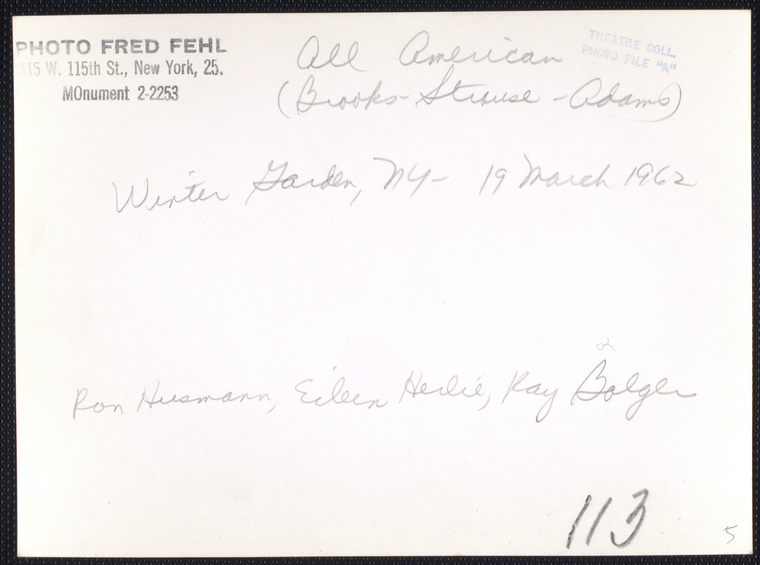 PHOTO FRED FEHL
415 W. 115th St., New York, 25.
MOnument 2-2253
THEATRE COLL.
PHOTO FILE "A"
All American
(Brooks-Strouse-Adams)
Winter Garden, NY- 19 March 1962
Ron Husmann, Eileen Herlie, Ray Bolger
113
5